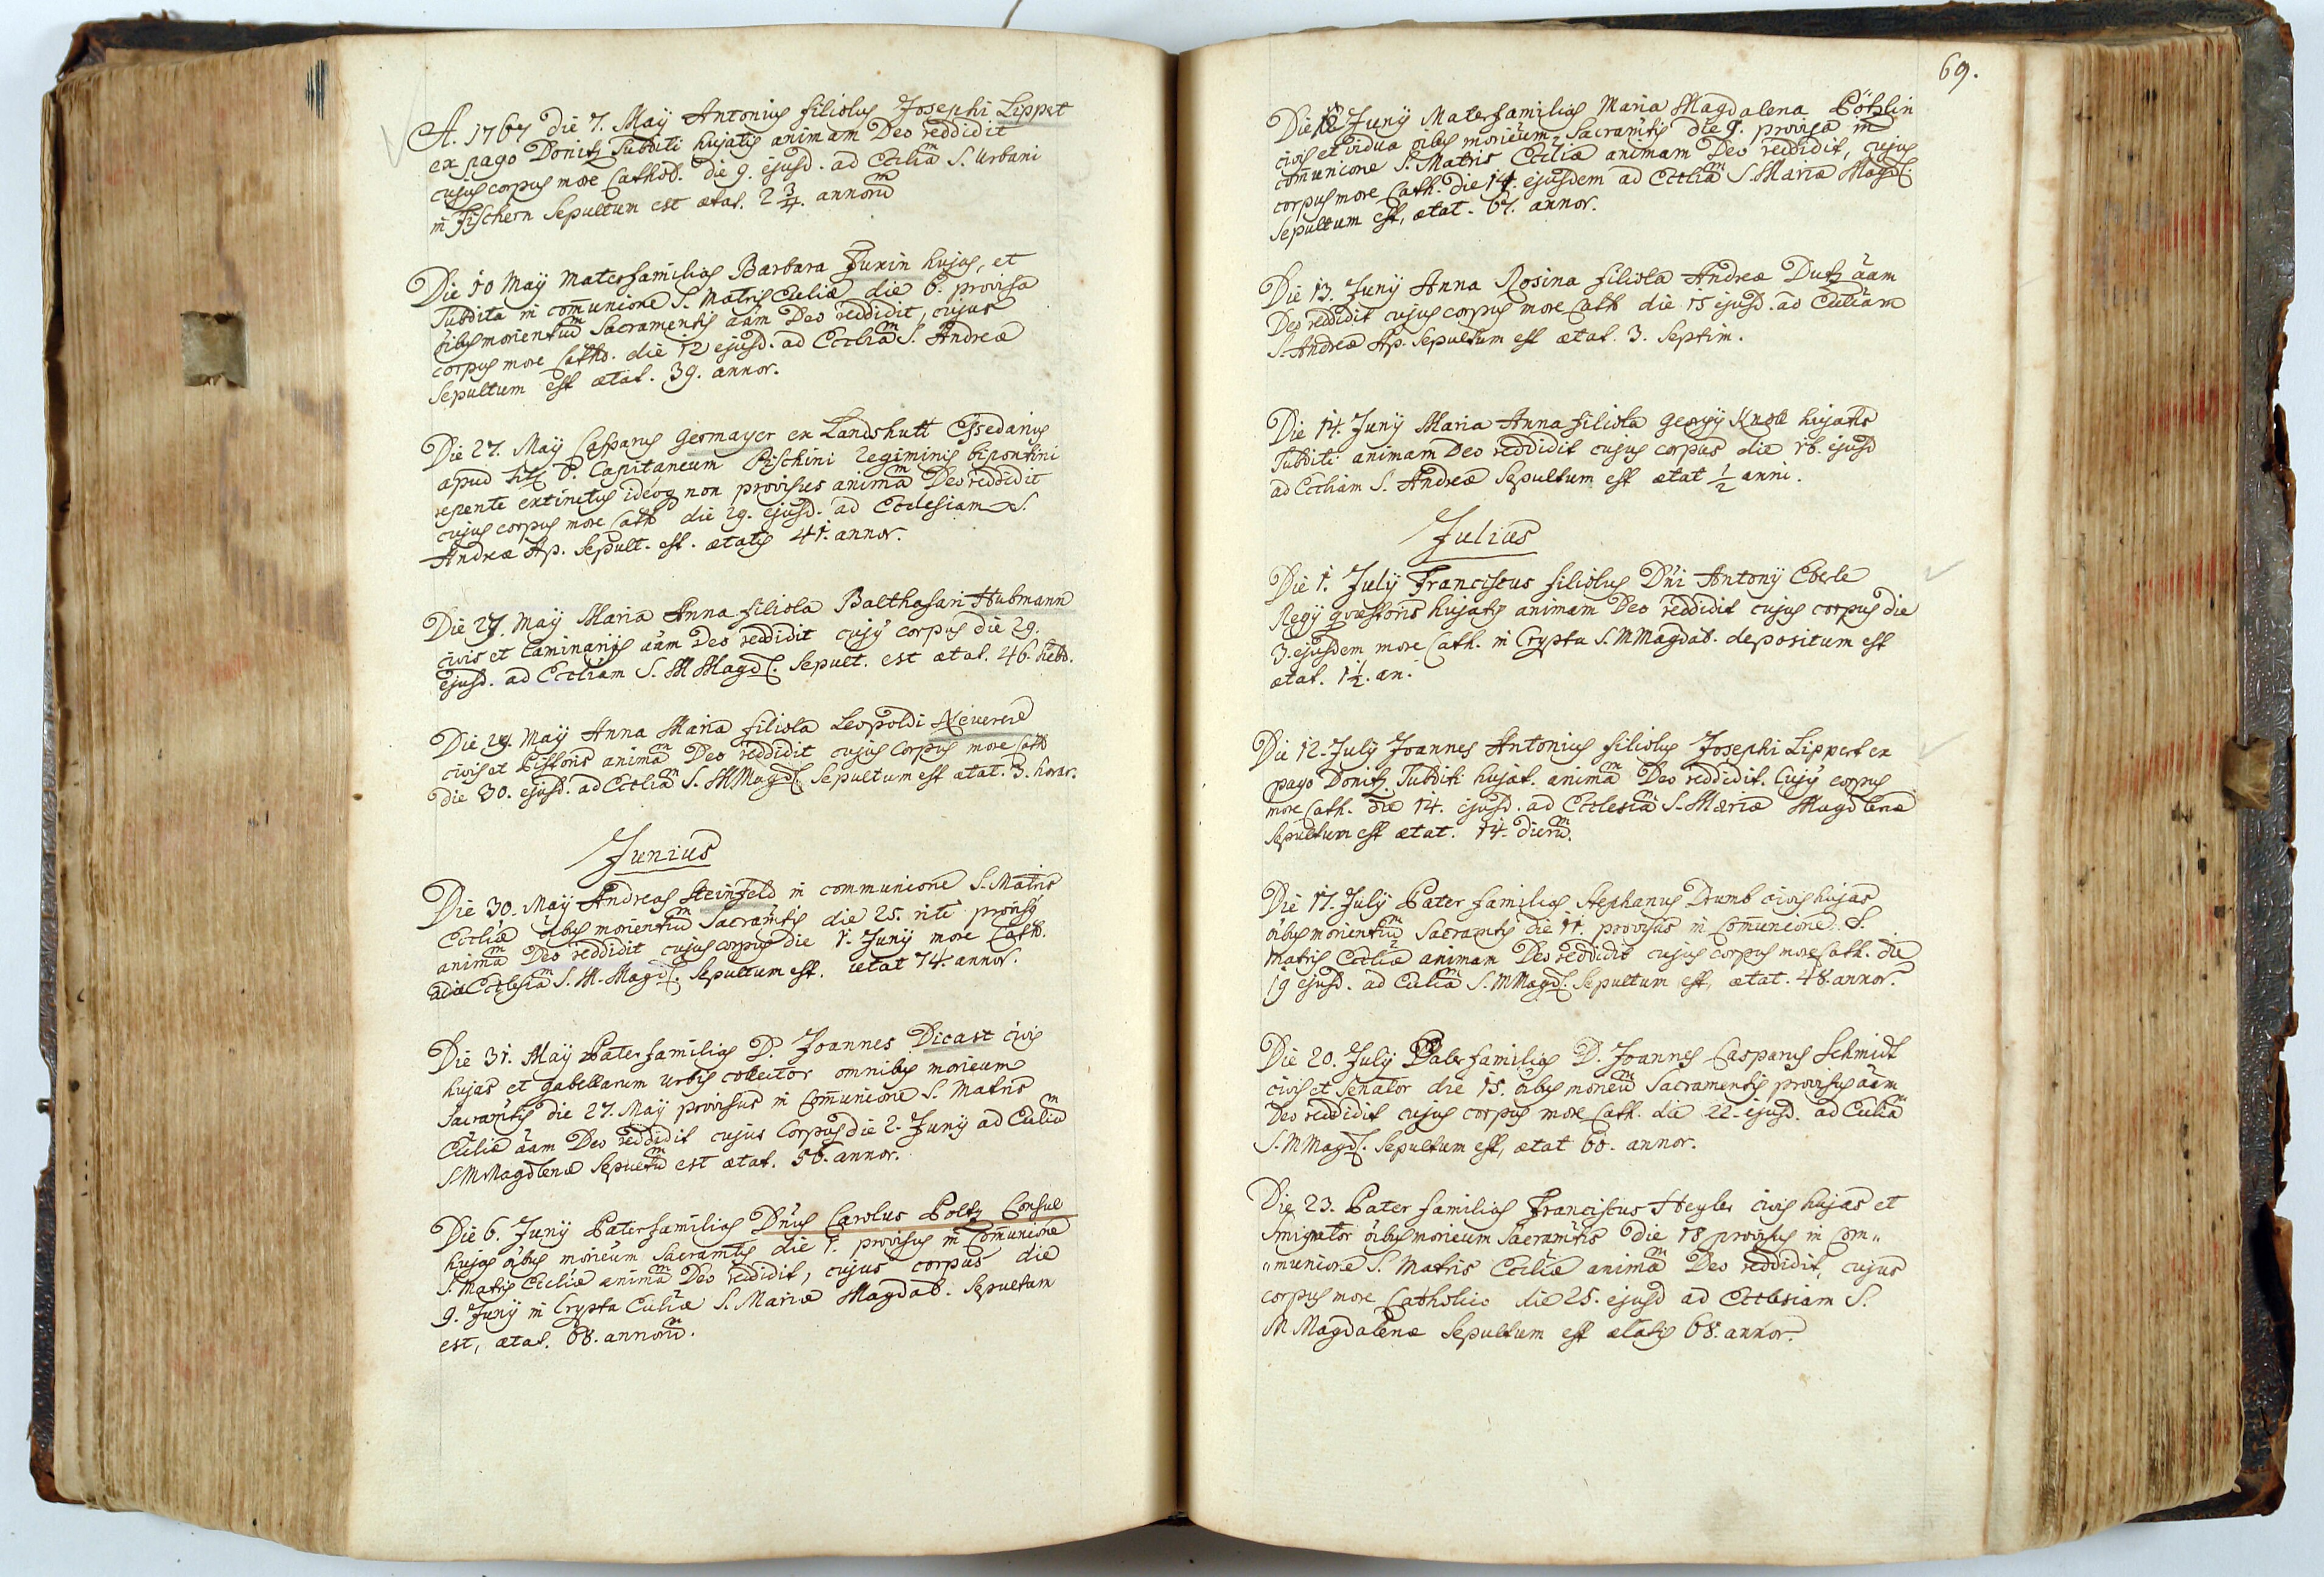 A. 1767 die 7. Maÿ Antonius filiolus Josephi Lippet
ex pago Donitz Subditi hujatis animam Deo reddidit
cujus corpus more Cathol. die 9. ejusd. ad Eccliam S. Urbani
in Fischern Sepultum est ætat. 2 3/4. annorum
Die 10 Maÿ Materfamilias Barbara Fuxin hujas, et
Subdita in comunione S. Matris Eccliæ die 6. provisa
oibus morientium Sacramentis aam Deo reddidit, cujus
corpus more Catho. die 12 ejusd. ad Eccliam S. Andreæ
Sepultum est ætat. 39. annor.
Die 27. Maÿ Casparus Germayer ex Landshutt
apud Tit. P. Capitaneum Pischini Regiminis bipontini
repente extinctus ideoq non provisus animam Deo reddidit
cujus corpus more Cath die 29. ejusd. ad Ecclesiam S.
Andreæ Ap. Sepult. est. ætatis 41. annor.
Die 27. Maÿ Maria Anna filiola Balthasari Hubmann
civis et Laminarijs aam Deo reddidit cujꝰ corpus die 29.
ejusd. ad Eccliam S. M Magdl. Sepult. est ætat. 46. hebd.
Die 29. Maÿ Anna Maria filiola Leopoldi
civis et Pistoris animam Deo reddidit cujus Corpus more Cath
die 30. ejusd. ad Eccliam S. M Magdl. Sepultum est ætat. 3. horar.
Junius
Die 30. Maÿ Andreas Steinfeld in communione S. Matris
Eccliæ oibus morientium Sacramtis die 25. rite provisꝰ
animam Deo reddidit cujus corpus die 1. Junÿ more Cath.
ad Ecclesiam S. M. Magdl. Sepultum est. ætat 74. annor.
Die 31. Maÿ Paterfamilias D. Joannes Dicast civis
hujas et gabellarum Urbis collector omnibus morieum
Sacramtis die 27. Maÿ provisus in Comunione S. Matris
Eccliæ aam Deo reddidit cujus Corpus die 2. Junÿ ad Eccliam
S. M Magdlenæ Sepultum est ætat. 56. annor.
Die 6. Junÿ Paterfamilias Dnus Carolus Poltz Consul
hujas oibus morieum Sacramtis die 1. provisus in Comunione
S. Matris Eccliæ animam Deo reddidit, cujus corpus die
9. Junÿ in Crypta Eccliæ S. Mariæ Magdal. Sepultum
est, ætat. 68. annorum.
69.
Die 12 Junÿ Materfamilias Maria Magdalena Pötzlin
civis et vidua oibus morieum Sacramtis die 9. provisa in
comunione S. Matris Eccliæ animam Deo reddidit, cujus
corpus more Cath. die 14. ejusdem ad Eccliam S. Mariæ Magdl.
Sepultum est, ætat. 67. annor.
Die 13. Junÿ Anna Rosina filiola Andreæ Dutz aam
Deo reddidit cujus corpus more Cath die 15 ejusd. ad Eccliam
S. Andreæ Ap. Sepultum est ætat. 3. Septim.
Die 14. Junÿ Maria Anna filiola Georgÿ Knoll hujatis
Subditi animam Deo reddidit cujus corpus die 16. ejusd
ad Eccliam S. Andreæ Sepultum est ætat 1/2 anni.
Julius
Die 1. Julÿ Franciscus filiolus Dni Antonÿ Eberle
Regÿ quæstoris hujatis animam Deo reddidit cujus corpus die
3. ejusdem more Cath. in Crypta S. M Magdal. depositum est
ætat. 1 1/2. an.
Die 12. Julÿ Joannes Antonius filiolus Josephi Lippert ex
pago Donitz Subditi hujat. animam Deo reddidit. cujꝰ corpus
more Cath. die 14. ejusd. ad Ecclesiam S. Mariæ Magdlenæ
Sepultum est ætat. 14. dierum.
Die 17. Julÿ Pater familias Stephanus Drumb civis hujas
oibus morientium Sacramtis die 11. provisus in Comunione S.
Matris Eccliæ animam Deo reddidit cujus corpus more Cath. die
19 ejusd. ad Eccliam S. M Magdl. Sepultum est, ætat. 48. annor.
Die 20. Julÿ Pater familias D. Joannes Casparus Schmidt
civis et Senator die 15. oibus morieum Sacramentis provisus aam
Deo reddidit cujus corpus more Cath. die 22. ejusd. ad Eccliam
S. M Magdl. Sepultum est, ætat 60. annor.
Die 23. Pater familias Franciscus Heyler civis hujas et
Smigmator oibus morieum Sacramtis die 18 provisus in Com„
„munione S. Matris Eccliæ animam Deo reddidit, cujus
corpus more Catholico die 25. ejusd ad Ecclesiam S.
M Magdalenæ Sepultum est ætatis 68. annor.